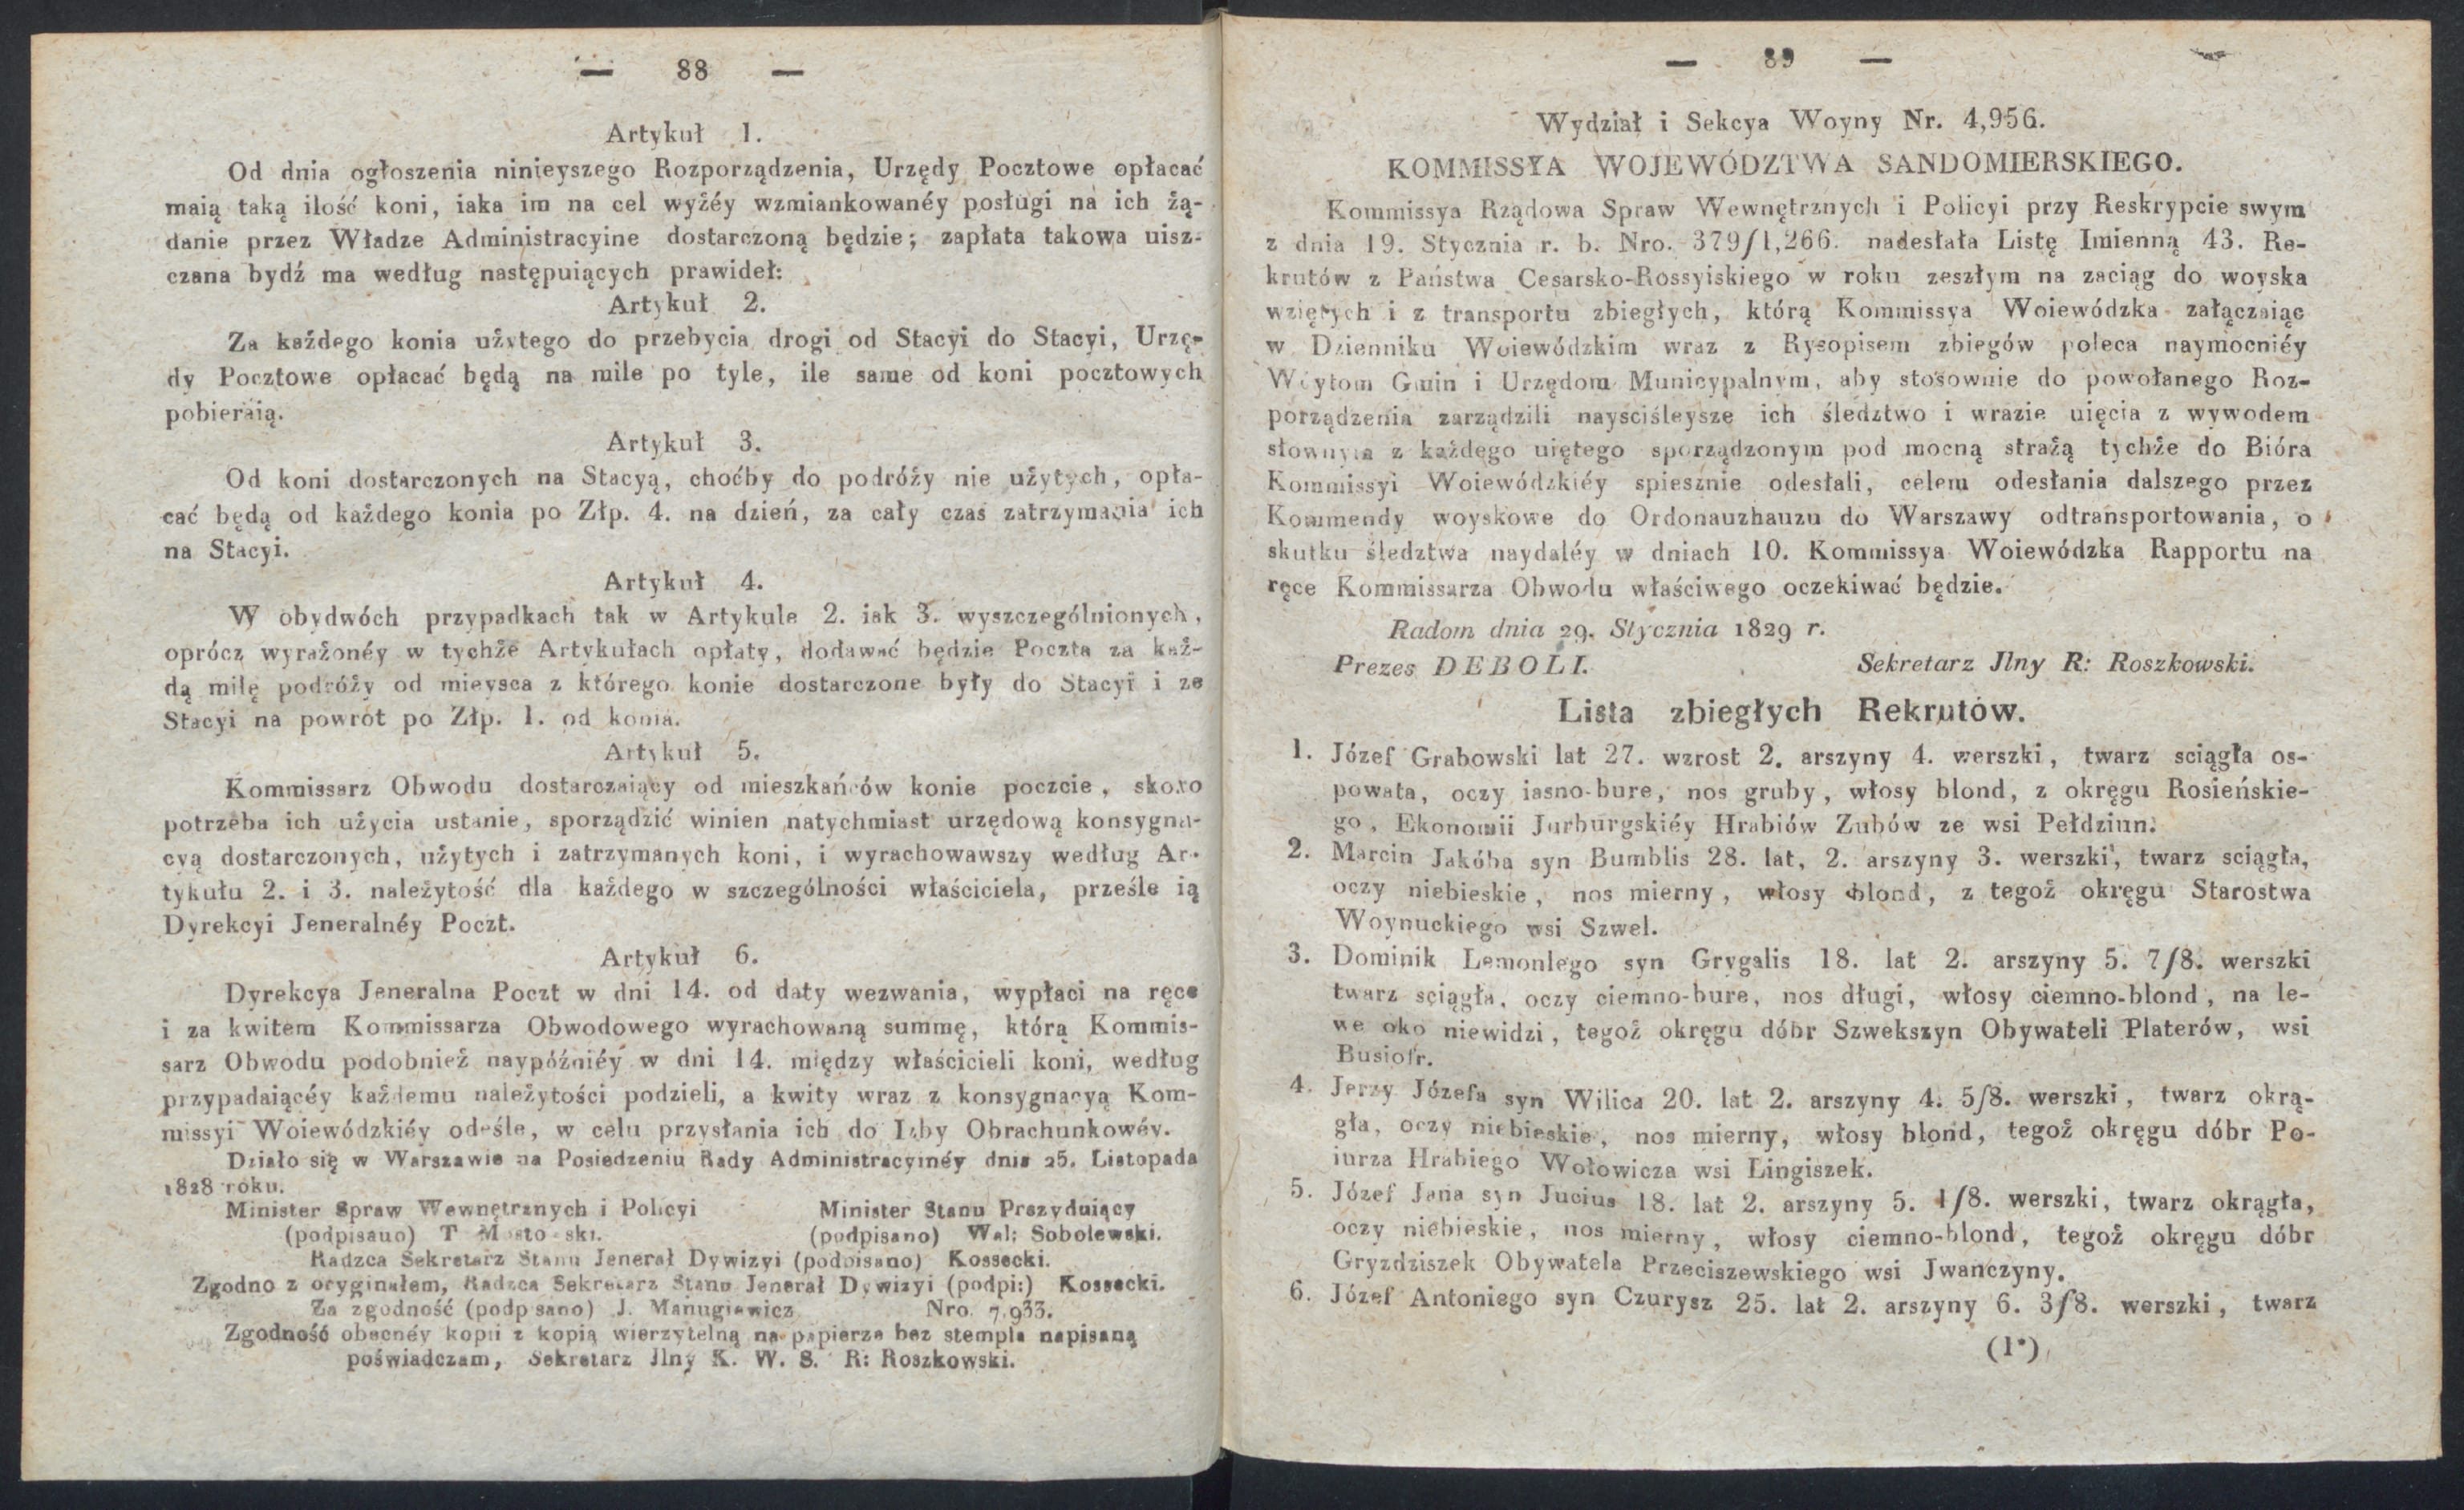 — 88 —
Artykuł 1.
Od dnia ogłoszenia ninieyszego Rozporządzenia, Urzędy Pocztowe opłacać
maią taką ilość koni, iaka im na cel wyźéy wzmiankowanéy posługi na ich żą-
danie przez Władze Administracyine dostarczoną będzie; zapłata takowa uisz-
czana bydź ma według następuiących prawideł:
Artykuł 2.
Za każdego konia użytego do przebycia drogi od Stacyi do Stacyi, Urzę-
dy Pocztowe opłacać będą na mile po tyle, ile same od koni pocztowych
pobieraią.
Artykuł 3.
Od koni dostarczonych na Stacyą, choćby do podróży nie użytych, opła-
cać będą od każdego konia po Złp. 4. na dzień, za cały czas zatrzymania ich
na Stacyi.
Artykuł 4.
W obydwóch przypadkach tak w Artykule 2. iak 3. wyszczególnionych,
oprócz wyrażonéy w tychże Artykułach opłaty, dodawać będzie Poczta za każ-
dą milę podróży od mieysca z którego konie dostarczone były do Stacyi i ze
Stacyi na powrót po Złp. 1. od konia.
Artykuł 5.
Kommissarz Obwodu dostarczaiący od mieszkańców konie poczcie, skoro
potrzeba ich użycia ustanie, sporządzić winien natychmiast urzędową konsygna-
cyą dostarczonych, użytych i zatrzymanych koni, i wyrachowawszy według Ar-
tykułu 2. i 3. należytość dla każdego w szczególności właściciela, prześle ią
Dyrekcyi Jeneralnéy Poczt.
Artykuł 6.
Dyrekcya Jeneralna Poczt w dni 14. od daty wezwania, wypłaci na ręce
i za kwitem Kommissarza Obwodowego wyrachowaną summę, którą Kommis-
sarz Obwodu podobnież naypóźniéy w dni 14. między właścicieli koni, według
przypadaiącéy każdemu należytości podzieli, a kwity wraz z konsygnacyą Kom-
missyi Woiewódzkiéy odeśle, w celu przysłania ich do Izby Obrachunkowéy.
Działo się w Warszawie na Posiedzeniu Rady Administracyinéy dnia 25. Listopada
1828 roku.
Minister Spraw Wewnętrznych i Policyi Minister Stanu Prezyduiący
(podpisano) T (podpisano) Wal: Sobolewski.
Radzca Sekretarz Stanu Jenerał Dywizyi (podpisano) Kossecki.
Zgodno z oryginałem, Radzca Sekretarz Stanu Jenerał Dywizyi (podpi:) Kossecki.
Za zgodność (podpisano) J. Manugiewicz Nro. 7,933.
Zgodność obecnéy kopii z kopią wierzytelną na papierze bez stempla napisaną
poświadczam, Sekretarz Jlny K. W. S. R: Roszkowski.
— 89 —
Wydział i Sekcya Woyny Nr. 4,956.
KOMMISSYA WOJEWÓDZTWA SANDOMIERSKIEGO.
Kommissya Rządowa Spraw Wewnętrznych i Policyi przy Reskrypcie swym
z dnia 19. Stycznia r. b. Nro. 379/1,266. nadesłała Listę Imienną 43. Re-
krutów z Państwa Cesarsko-Rossyiskiego w roku zeszłym na zaciąg do woyska
wziętych i z transportu zbiegłych, którą Kommissya Woiewódzka załączaiąc
w Dzienniku Woiewódzkim wraz z Rysopisem zbiegów poleca naymocniéy
Woytom Gmin i Urzędom Municypalnym, aby stosownie do powołanego Roz-
porządzenia zarządzili nayściśleysze ich śledztwo i wrazie uięcia z wywodem
słownym z każdego uiętego sporządzonym pod mocną strażą tychże do Bióra
Kommissyi Woiewódzkiéy spiesznie odesłali, celem odesłania dalszego przez
Kommendy woyskowe do Ordonauzhauzu do Warszawy odtransportowania, o
skutku śledztwa naydaléy w dniach 10. Kommissya Woiewódzka Rapportu na
ręce Kommissarza Obwodu właściwego oczekiwać będzie.
Radom dnia 29. Stycznia 1829 r.
Prezes DEBOLI. Sekretarz Jlny R: Roszkowski.
Lista zbiegłych Rekrutów.
1. Józef Grabowski lat 27. wzrost 2. arszyny 4. werszki, twarz sciągła os-
powata, oczy iasno-bure, nos gruby, włosy blond, z okręgu Rosieńskie-
go, Ekonomii Jurburgskiéy Hrabiów Zubów ze wsi Pełdziun.
2. Marcin Jakóba syn Bumblis 28. lat, 2. arszyny 3. werszki, twarz sciągła,
oczy niebieskie, nos mierny, włosy blond, z tegoż okręgu Starostwa
Woynuckiego wsi Szwel.
3. Dominik Lemonlego syn Grygalis 18. lat 2. arszyny 5. 7/8. werszki
twarz sciągła, oczy ciemno-bure, nos długi, włosy ciemno-blond, na le-
we oko niewidzi, tegoż okręgu dóbr Szwekszyn Obywateli Platerów, wsi
Busiofr.
4. Jerzy Józefa syn Wilica 20. lat 2. arszyny 4. 5/8. werszki, twarz okrą-
gła, oczy niebieskie, nos mierny, włosy blond, tegoż okręgu dóbr Po-
iurza Hrabiego Wołowicza wsi Lingiszek.
5. Józef Jana syn Jucius 18. lat 2. arszyny 5. 1/8. werszki, twarz okrągła,
oczy niebieskie, nos mierny, włosy ciemno-blond, tegoż okręgu dóbr
Gryzdziszek Obywatela Przeciszewskiego wsi Jwanczyny.
6. Józef Antoniego syn Czurysz 25. lat 2. arszyny 6. 3/8. werszki, twarz
(1*)